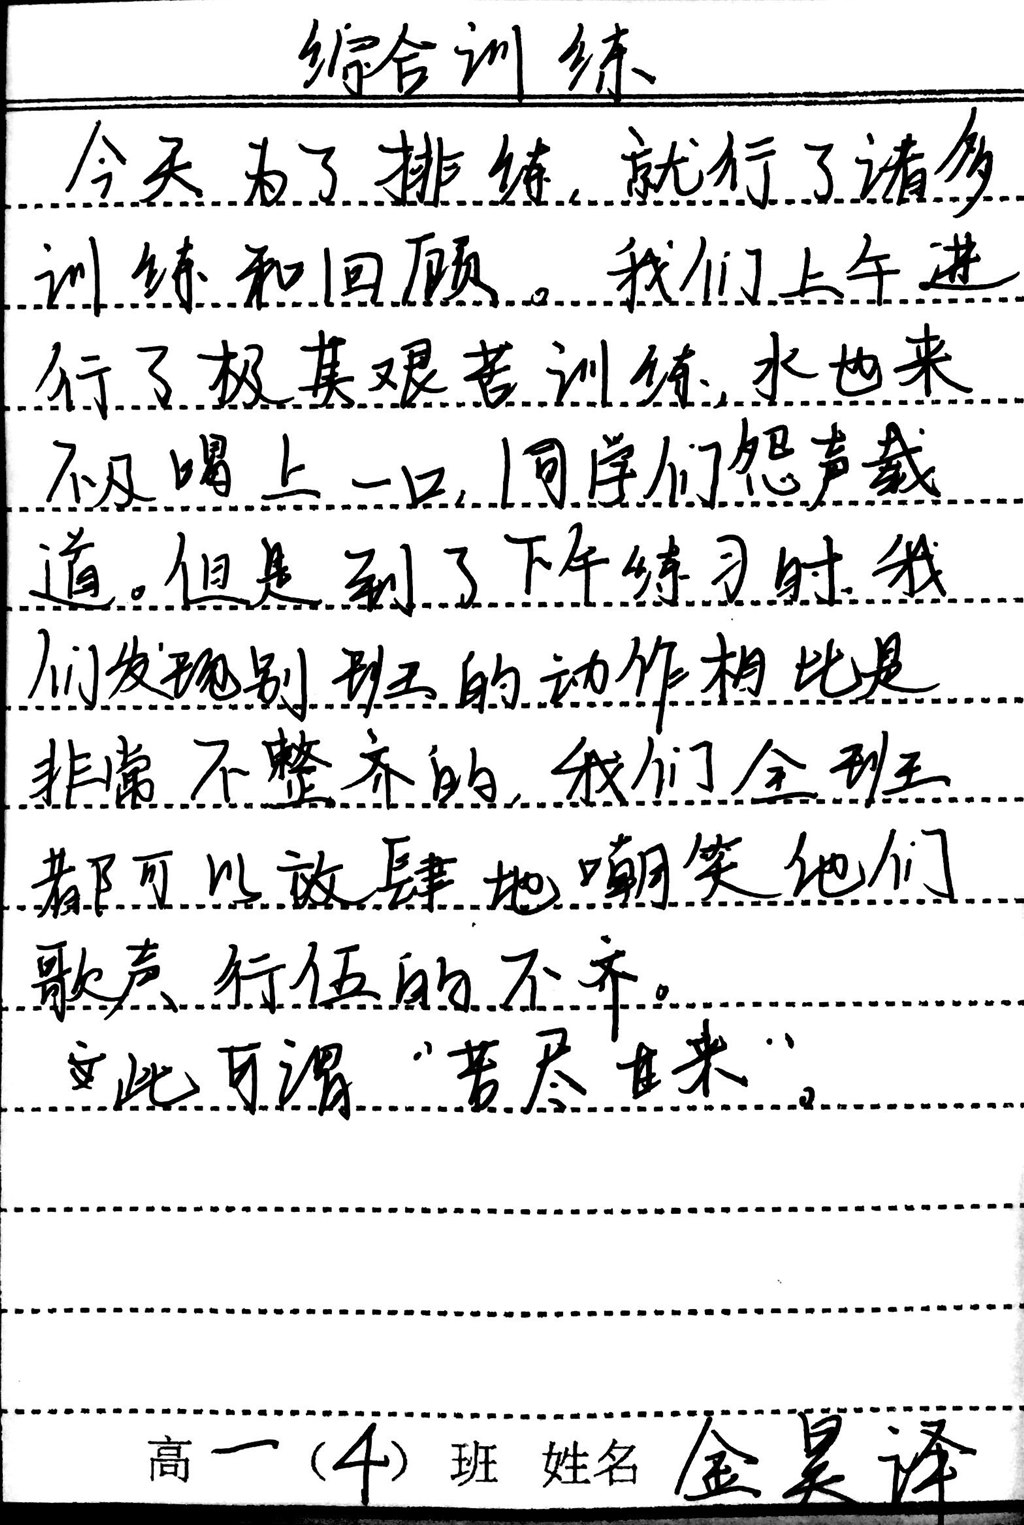 综合训练
今天为了排练，就行了诸多
训练和回顾。我们上午进
行了极其艰苦训练，水也来
不及喝上一口，同学们怨声载
道。但是到了下午练习时，我
们发现别班的动作相比是
非常不整齐的，我们全班
都可以放肆地嘲笑他们
歌声、行伍的不齐。
此可谓“苦尽甘来”。
高一（4）班 姓名 金昊译